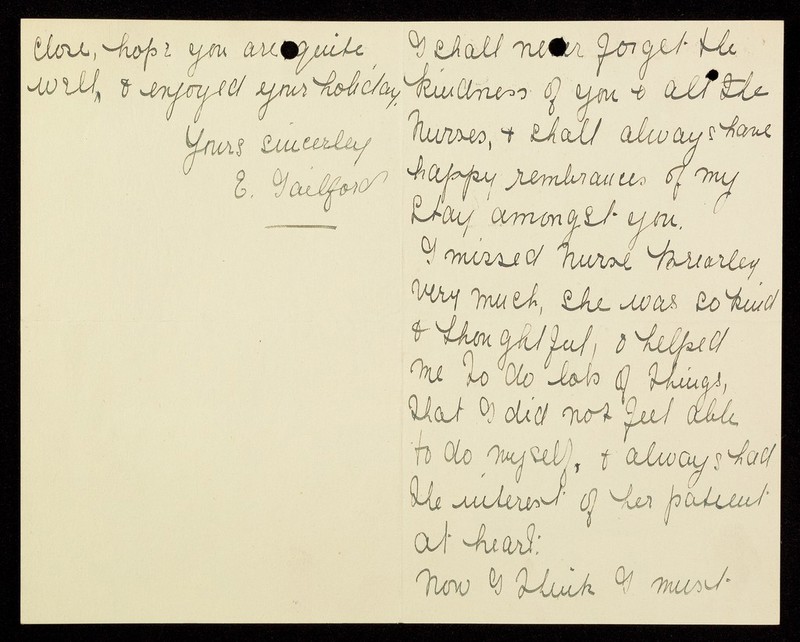 I shall never forget the
kindness of you & all the
Nurses, & shall always have
happy rembrances of my
stay amongst you.
I missed Nurse Brearley
very much, she was so kind
& thoughtful, & helped
me to do lots of things,
that I did not feel able
to do myself, & always had
the interest of her patient
at heart.
Now I think I must
close, hope you are quite
well, & enjoyed your holiday,
Yours sincerley
E. Tailford